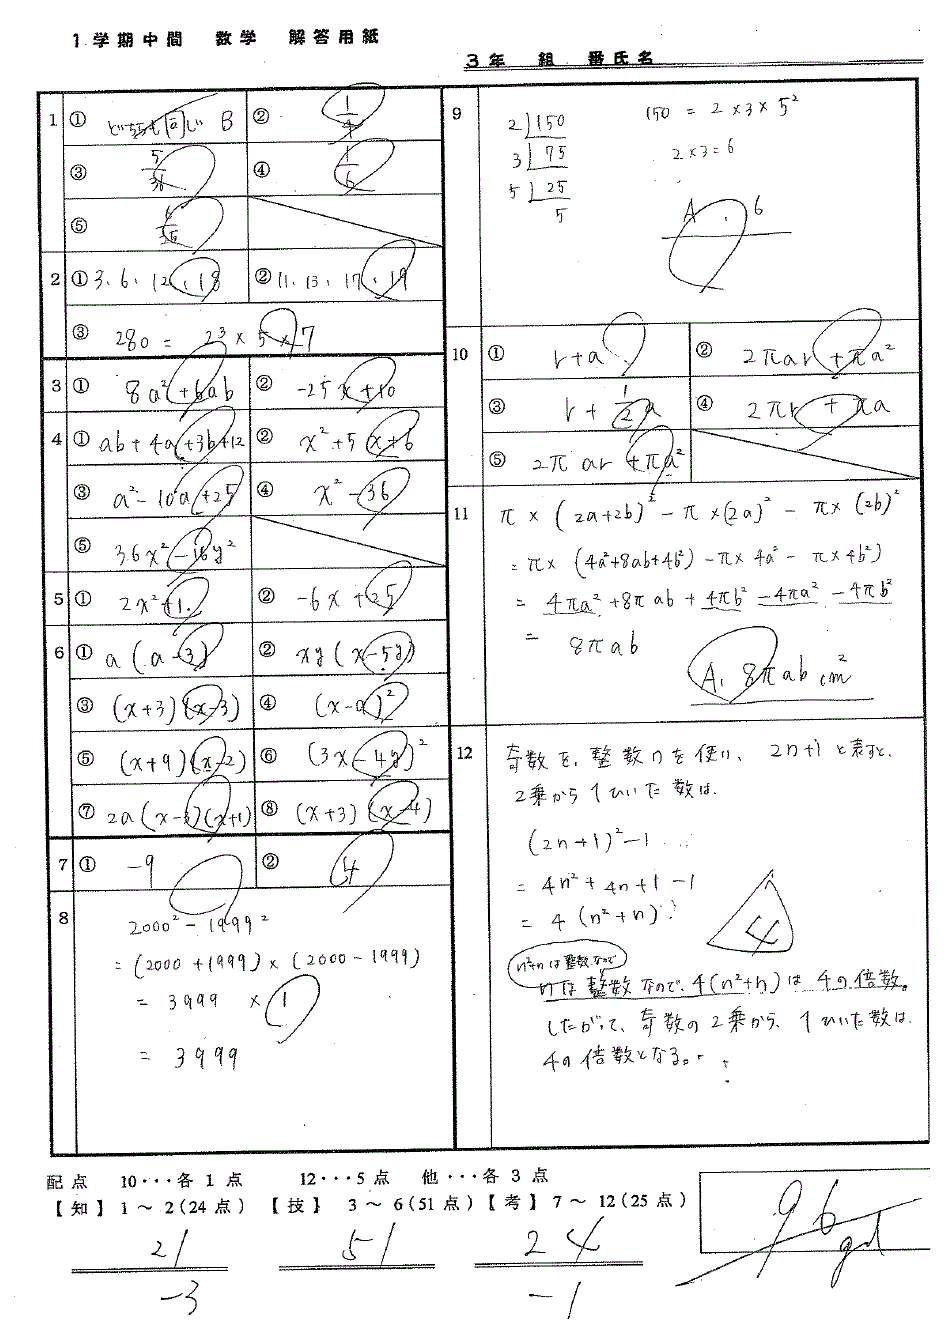 1学期中間 数学 解答用紙
3年 組 番氏名
1 ① どちらも同じ B ② 1/4
③ 5/36 ④ 1/6
⑤
2 ① 3, 6, 12, 18 ② 11, 13, 17, 19
③ 280 = 2³ × 5 × 7
3 ① 8a² + 6ab ② -25x + 10
4 ① ab + 4a + 3b + 12 ② x² + 5x + 6
③ a² - 10a + 25 ④ x² - 36
⑤ 36x² - 16y²
5 ① 2x² + 1 ② -6x + 25
6 ① a(a-3) ② xy(x-5y)
③ (x+3)(x-3) ④ (x-a)²
⑤ (x+9)(x-2) ⑥ (3x-4y)²
⑦ 2a(x-3)(x+1) ⑧ (x+3)(x-4)
7 ① -9 ② 4
8
2000² - 1999²
= (2000 + 1999) × (2000 - 1999)
= 3999 × 1
= 3999
9
2 150
3 75
5 25
5
150 = 2 × 3 × 5²
2 × 3 = 6
A. 6
10 ① r + a ② 2πar + πa²
③ r + 1/2 a ④ 2πr + πa
⑤ 2πar + πa²
11 π × (2a+2b)² - π × (2a)² - π × (2b)²
= π × (4a²+8ab+4b²) - π × 4a² - π × 4b²
= 4πa² + 8πab + 4πb² - 4πa² - 4πb²
= 8πab
A. 8πab cm²
12 奇数を、整数nを使い、2n+1と表すと、
2乗から1ひいた数は、
(2n+1)² - 1
= 4n² + 4n + 1 - 1
= 4(n² + n)
4
n²+nは整数なので
nは整数なので、4(n²+n)は4の倍数。
したがって、奇数の2乗から、1ひいた数は、
4の倍数となる。
配点 10・・・各1点 12・・・5点 他・・・各3点
【知】 1～2(24点) 【技】 3～6(51点) 【考】 7～12(25点)
21 51 24
-3 -1
96